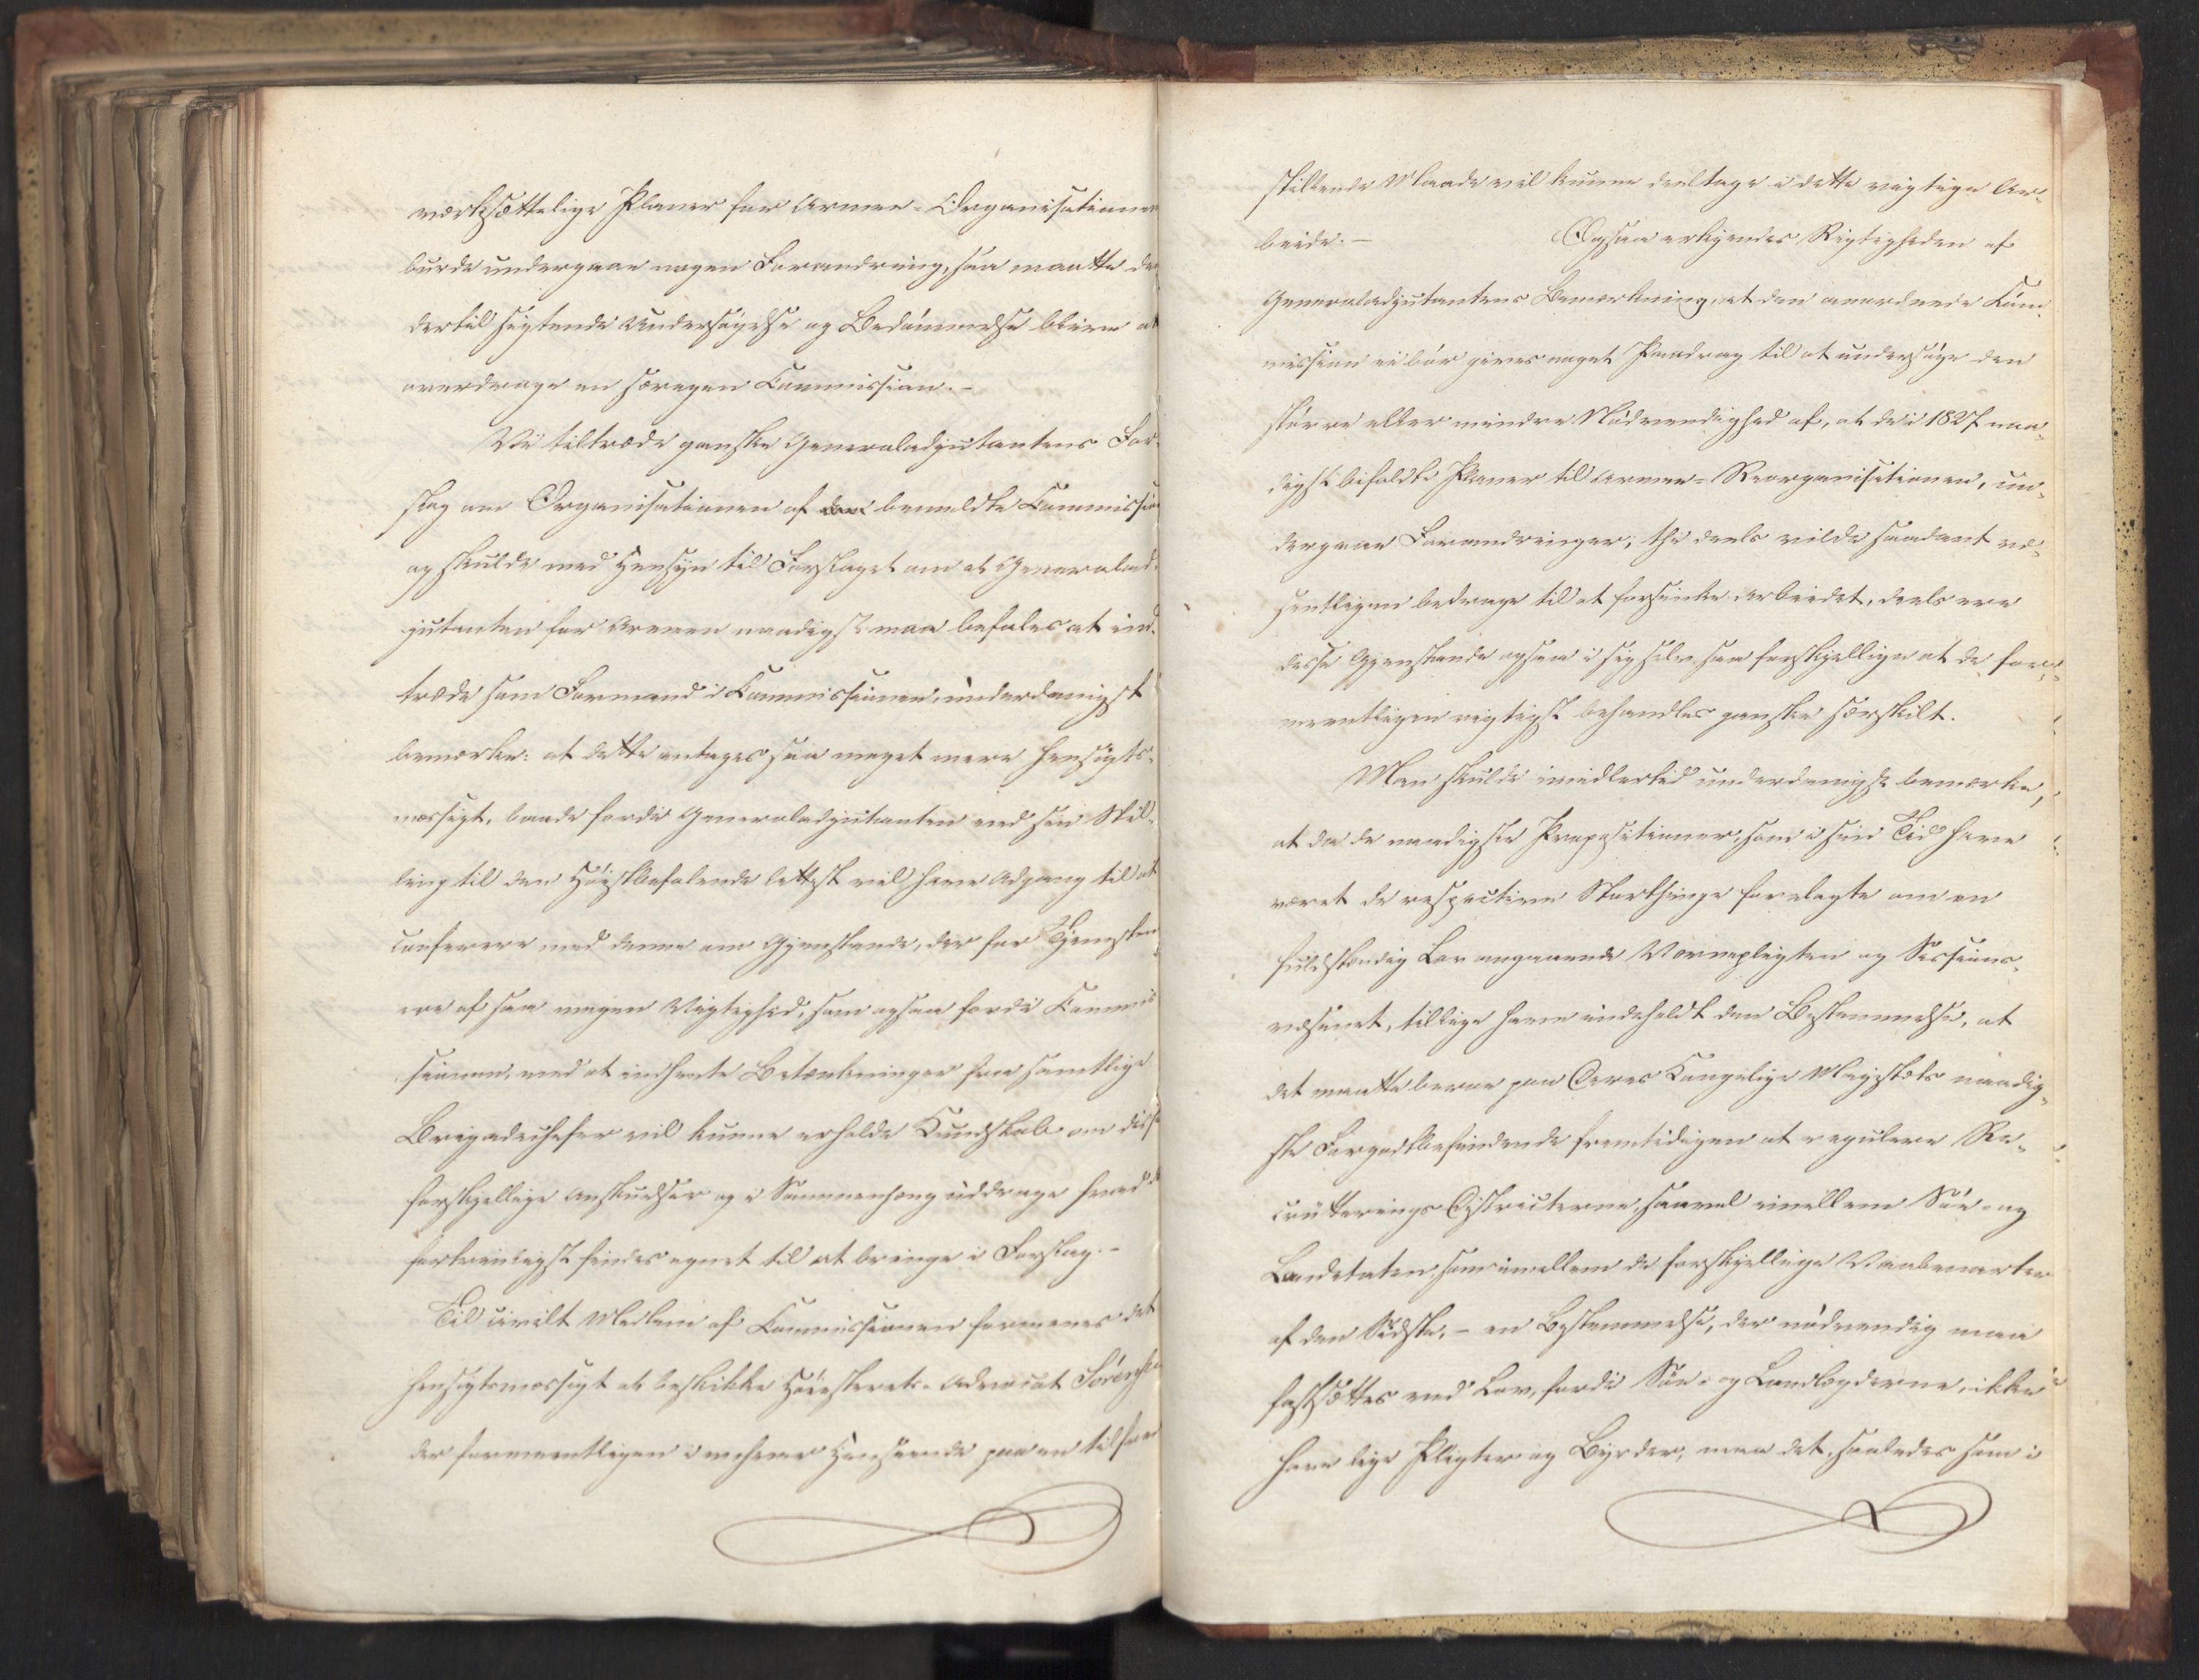 værksættelige Planer for Armee-Organisationen
burde undergaae nogen Forandring, saa maatte den
dertil sigtende Undersøgelse og Bedømmelse blive at
overdrage en særegen Commission.-
Vi tiltræde ganske Generaladjutantens For-
slag om Organisationen af den bemeldte Commission
og skulde med Hensyn til Forslaget om at Generalad-
jutanten for Armeen naadigst maa befales at ind-
træde som Formand i Commissionen, underdanigst
bemærke: at dette antages saa meget mere hensigts-
mæssigt, baade fordi Generaladjutanten ved sin Stil-
ling til den Høistbefalende lettest vil have Adgang til at
conferere med denne om Gjenstande, der for Tjenesten
ere af saa megen Vigtighed, som ogsaa fordi Commis
sionen, ved at indhente Betænkninger fra samtlige
Brigadechefer vil kunne erholde Kundskab om disse
forskjellige Anskuelser og i Sammenhæng uddrage hvad der
fortrinligst findes egnet til at bringe i Forslag.-
Til civilt Medlem af Commissionen formenes det
hensigtsmæssigt at beskikke Høiesterets-Advocat Sørensen
der formeentligen i enhver Henseende paa en tilfreds
stillende Maade vil kunne deeltage i dette vigtige Ar-
beide.- Ogsaa erkjendes Rigtigheden af
Generaladjutantens Bemærkning, at den anordnede Com-
mission ei bør gives noget Paadrag til at undersøge den
større eller mindre Nødvendighed af, at de i 1827 naa-
digst bifaldte Planer til Armee-Reorganisationen, un-
dergaae Forandringer; thi deels vilde saadant væ-
sentligen bidrage til at forsinke Arbeidet, deels ere
disse Gjenstande ogsaa i sig selv saa forskjellige at de for-
meentligen rigtigst behandles ganske særskilt.
Man skulde imidlertid underdanigst bemærke,
at da de naadigste Propositioner, som i sin Tid have
været de respective Storthinge forelagte om en
fuldstændig Lov angaaende Værnepligten og Sessions-
væsenet, tillige have indeholdt den Bestemmelse, at
det maatte beroe paa Deres Kongelige Majestæts naadig-
ste Forgodtbefindende fremtidigen at regulere Re-
crutterings Districterne, saavel imellem Søe- og
Landetaten som imellem de forskjellige Vaabenarter
af den Sidste, - en Bestemmelse, der nødvendig maa
fastsættes ved Lov, fordi Søe- og Landlægderne ikke
have lige Pligter og Byrder, maa det, saaledes som i